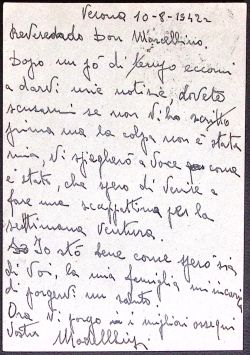 Verona 10-8-1942
Reverendo Don Marcellino.
Dopo un pó di tempo eccomi
a darvi mie notizie, dovete
scusarmi se non vi ho scritto
prima ma la colpa non é stata
mia, vi spiegheró a voce come
é stato, che spero di venire a
fare una scappatina per la
settimana ventura.
Io stó bene come spero sia
di Voi, la mia famiglia mi incarica
di porgervi un saluto.
Ora Vi porgo i migliori ossequi
Vostro